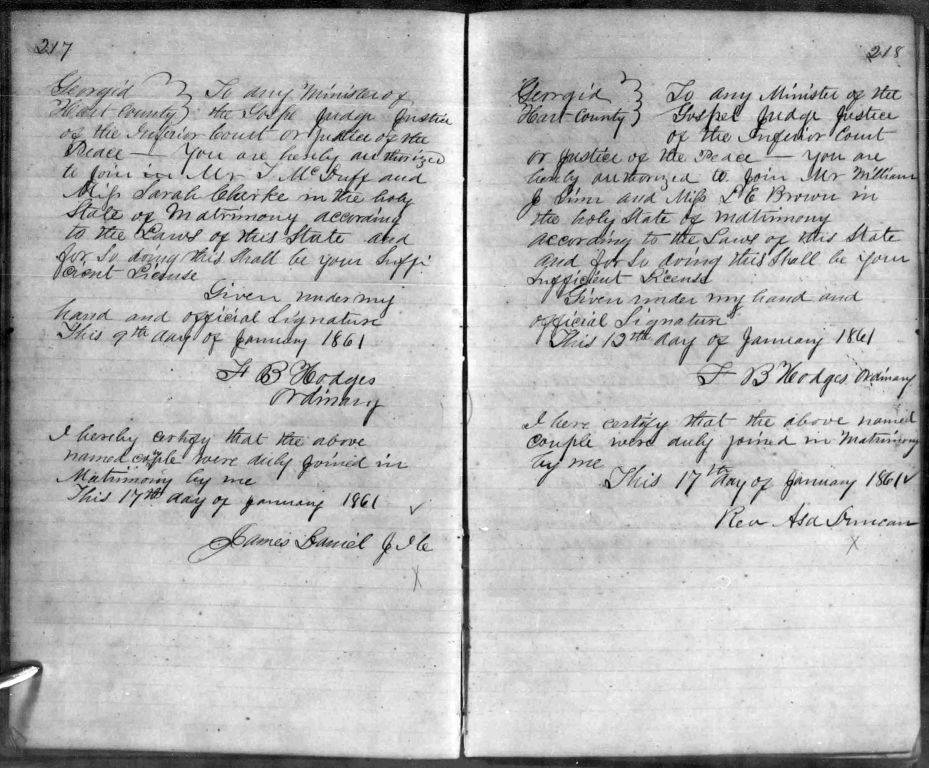 217
Georgia } To any Minister of
Hart County } the Gospe Judge Justice
of the Inferior Court or Justice of the
Peace — You are herely authorized
to join in Mr T McDuff and
Miss Sarah Cherke in the holy
State of Matrimony according
to the Laws of this State and
for So doing this Shall be your Suffi
cient License
Given under my
hand and official Signature
This 9th day of January 1861
F B Hodges
Ordinary
I hereby certify that the above
named couple were duly joined in
Matrimony by me
This 17th day of January 1861
James Daniel J I C
218
Georgia } To any Minister of the
Hart County } Gospel Judge Justice
of the Inferior Court
or Justice of the Peace — You are
herely authorized to Join Mr William
J and Miss L E Brown in
the holy State of matrimony
according to the Laws of this State
and for So doing this Shall be your
Sufficient License
Given under my hand and
official Signature
This 12th day of January 1861
F B Hodges Ordinary
I here certify that the above named
couple were duly joined in Matrimony
by me
This 17th day of January 1861
Rev Asa Duncan